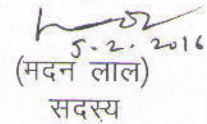 5.2.2016
(मदन लाल)
सदस्य